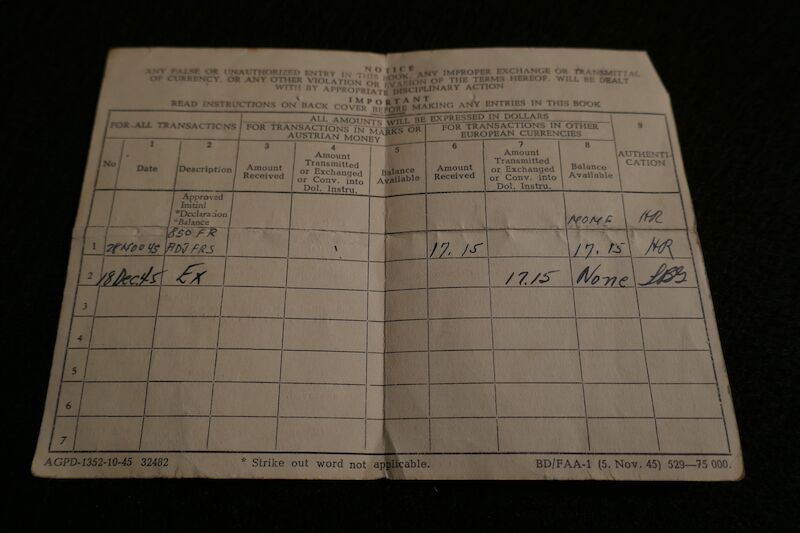 NOTICE
ANY FALSE OR UNAUTHORIZED ENTRY IN THIS BOOK, ANY IMPROPER EXCHANGE OR TRANSMITTAL
OF CURRENCY, OR ANY OTHER VIOLATION OR EVASION OF THE TERMS HEREOF, WILL BE DEALT
WITH BY APPROPRIATE DISCIPLINARY ACTION
IMPORTANT
READ INSTRUCTIONS ON BACK COVER BEFORE MAKING ANY ENTRIES IN THIS BOOK
ALL AMOUNTS WILL BE EXPRESSED IN DOLLARS
FOR ALL TRANSACTIONS
FOR TRANSACTIONS IN MARKS OR
AUSTRIAN MONEY
FOR TRANSACTIONS IN OTHER
EUROPEAN CURRENCIES
9
AUTHENTI-
CATION
No
1
Date
2
Description
3
Amount
Received
4
Amount
Transmitted
or Exchanged
or Conv. into
Dol. Instru.
5
Balance
Available
6
Amount
Received
7
Amount
Transmitted
or Exchanged
or Conv. into
Dol. Instru.
8
Balance
Available
Approved
Initial
*Declaration
*Balance
NONE HR
850 FR
1 28 NOV 45 ADJ FRS 17.15 17.15 HR
2 18 Dec 45 Ex 17.15 None
3
4
5
6
7
AGPD-1352-10-45 32482
* Strike out word not applicable.
BD/FAA-1 (5. Nov. 45) 529—75 000.